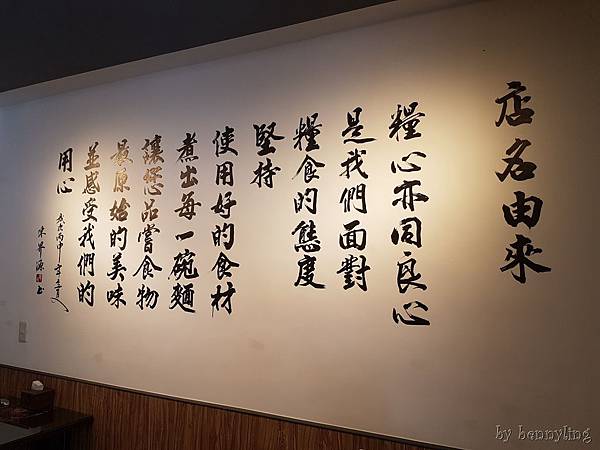 店名由來
糧心亦同良心
是我們面對
糧食的態度
堅持
使用好的食材
煮出每一碗麵
讓您品嘗食物
最原始的美味
並感受我們的
用心
by bennyling